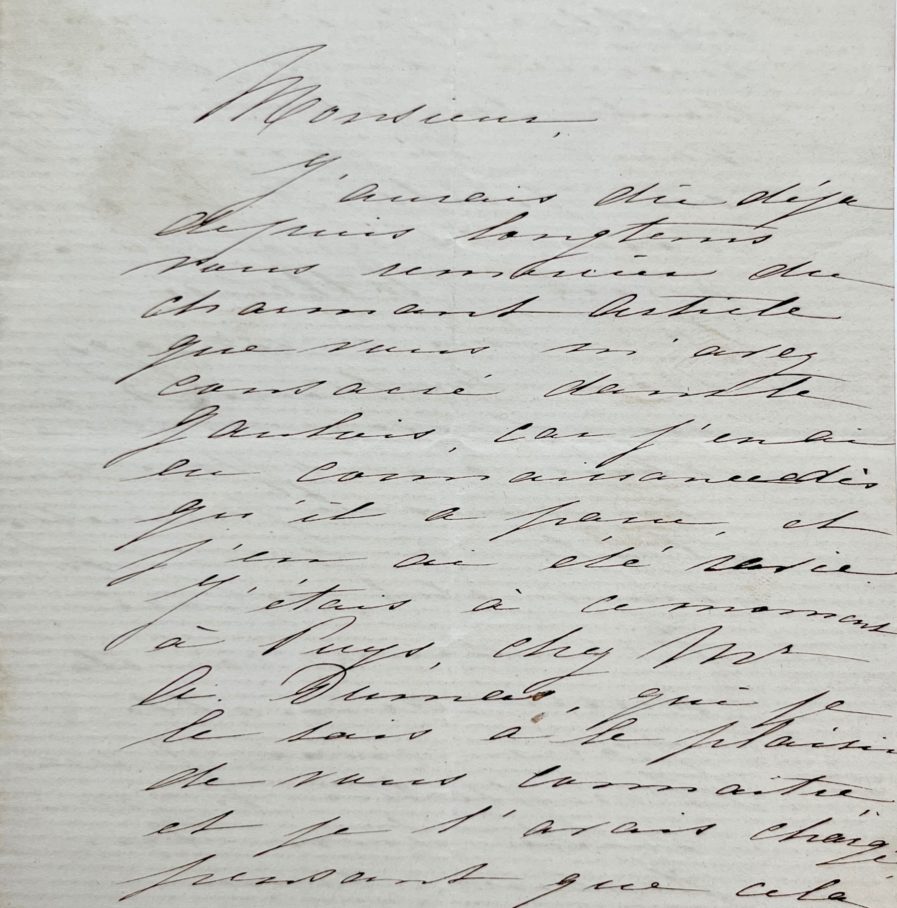 Monsieur,
J'aurais dû déjà
depuis longtems
vous remercier du
charmant article
que vous m'avez
consacré dans le
Gaulois, car j'en ai
eu connaissance dès
qu'il a paru, et
j'en ai été ravie
J'étais à ce moment
à Puys, chez Mr
A. Dumas, qui je
le sais a le plaisir
de vous connaitre
et je l'avais chargé
pensant que cela